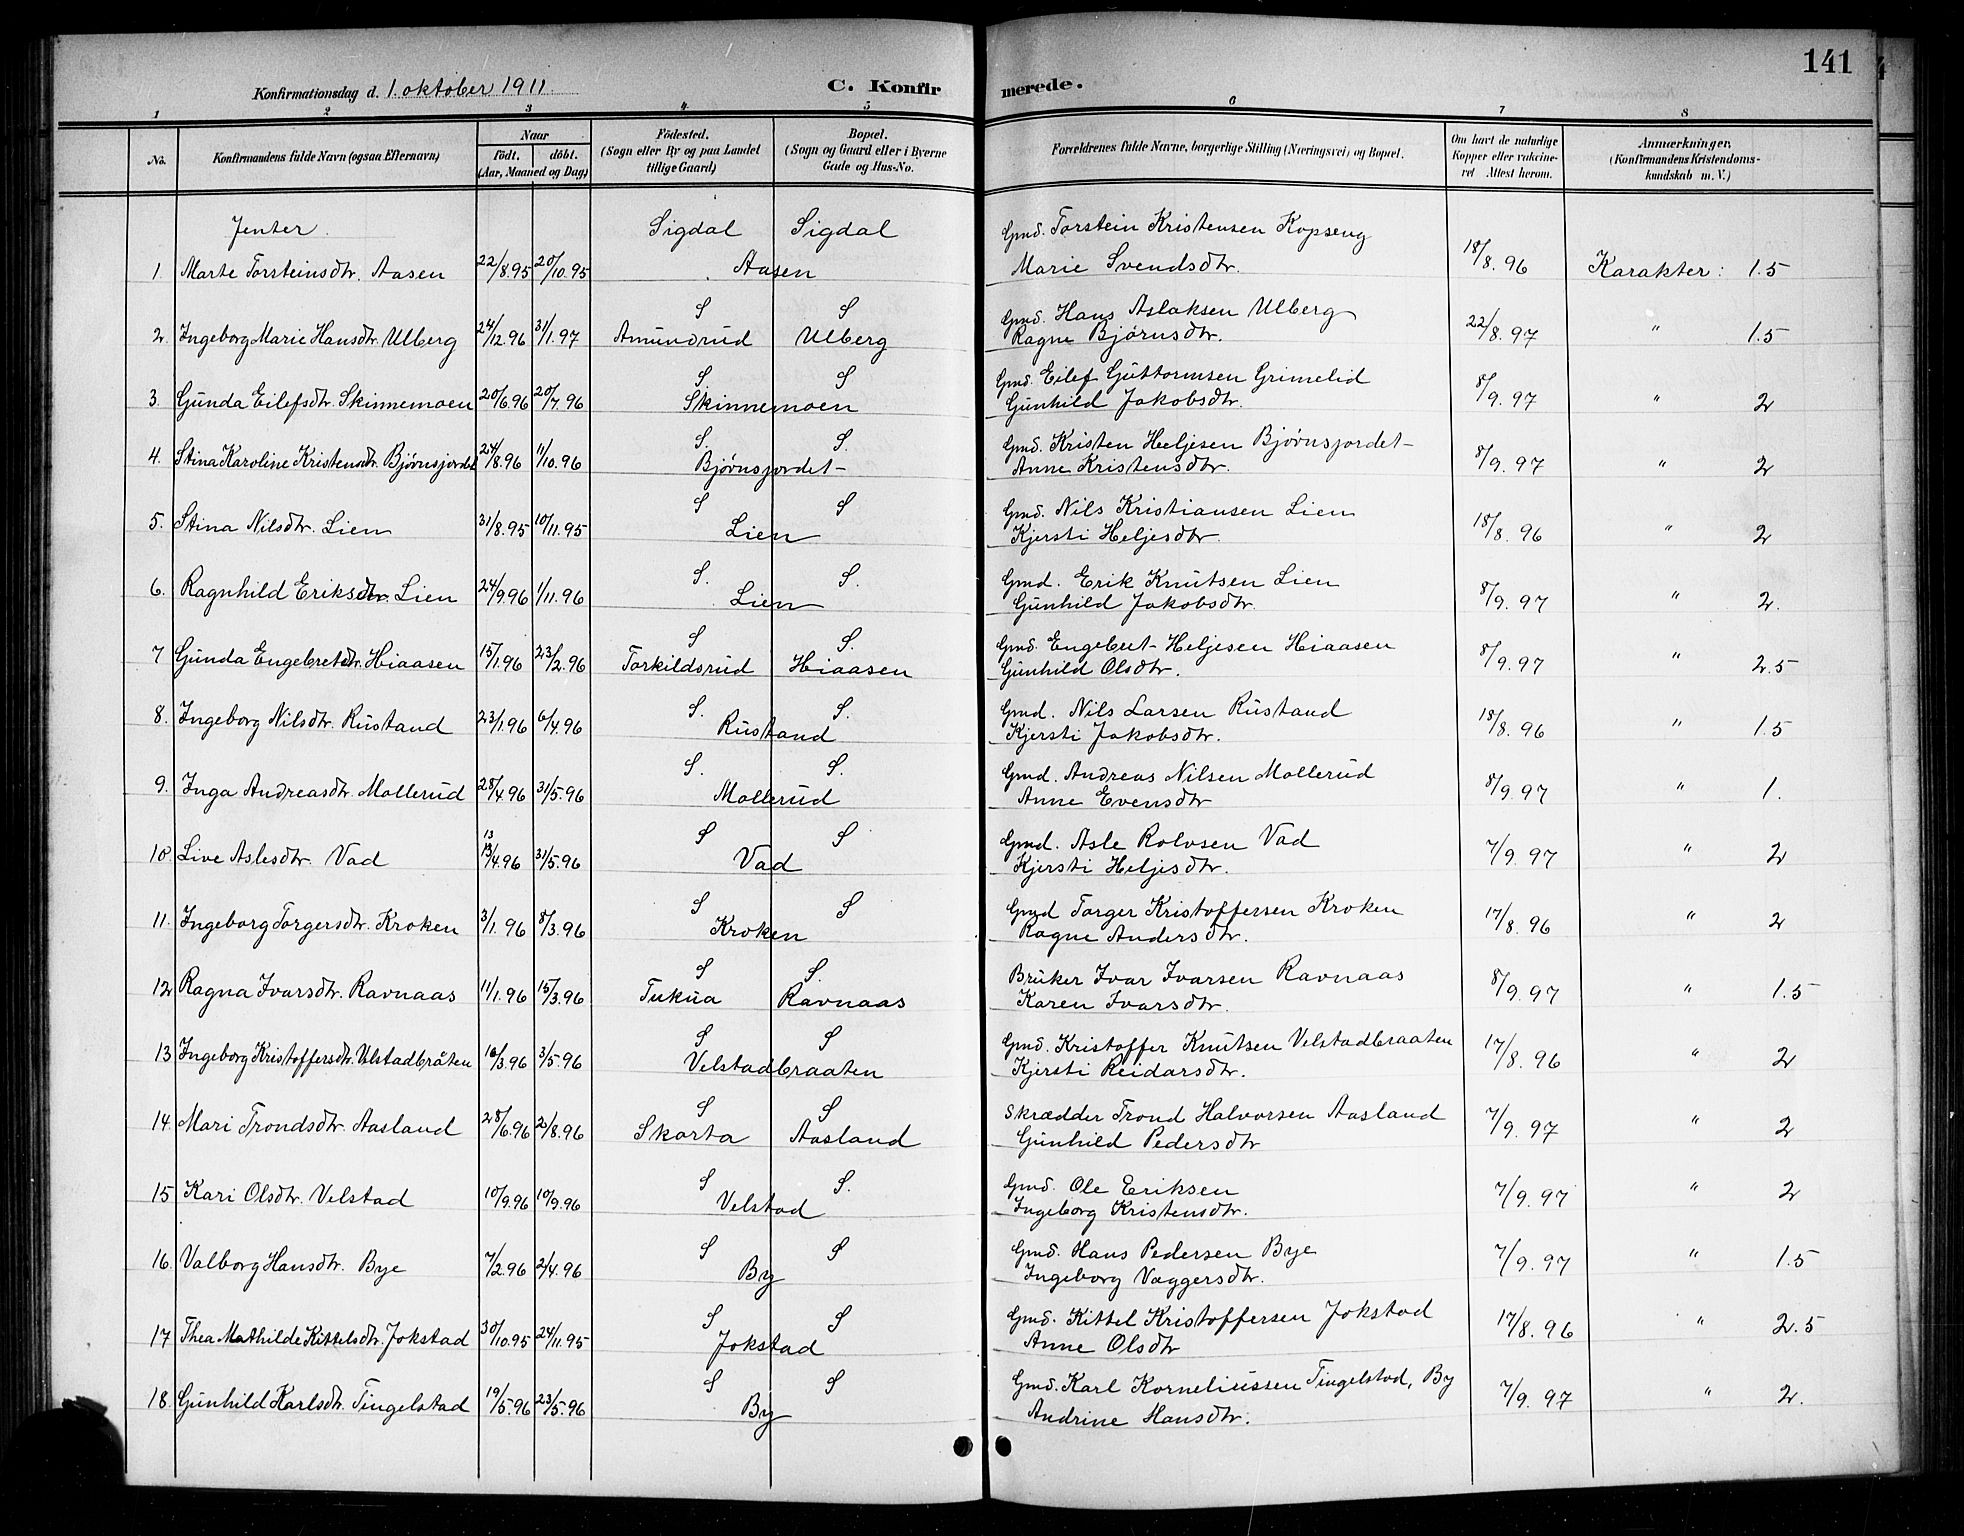 141
Konfirmationsdag d. 1. oktober 1911. C. Konfirmerede.
1 2 3 4 5 6 7 8
No. Konfirmandens fulde Navn (ogsaa Efternavn) Naar födt. döbt. (Aar, Maaned og Dag) Födested. (Sogn eller By og paa Landet tillige Gaard) Bopæl. (Sogn og Gaard eller i Byerne Gade og Hus-No. Forældrenes fulde Navne, borgerlige Stilling (Næringsvei) og Bopæl. Om havt de naturlige Kopper eller vakcineret Attest herom. Anmærkninger, (Konfirmandens Kristendomskundskab m. V.)
Jenter. Sigdal Sigdal Gmd. Torstein Kristensen Kopseng
1. Marte Torsteinsdtr. Aasen 22/8.95 20/10.95 Aasen Marie Svendsdtr. 18/8.96 Karakter: 1.5
S S Gmd. Hans Aslaksen Ulberg
2. Ingeborg Marie Hansdtr. Ulberg 24/12.96 31/1.97 Amundrud Ulberg Ragne Bjørnsdtr. 22/8.97 " 1.5
S. S Gmd. Eilef Guttormsen Grimelid
3. Gunda Eilefsdtr. Skinnemoen 20/6.96 20/7.96 Skinnemoen Gunhild Jakobsdtr. 8/9.97 " 2
S. S. Gmd. Kristen Heljesen Bjørnsjordet
4. Stina Karoline Kristensdtr. Bjørnsjordet 24/8.96 11/10.96 Bjørnsjordet Anne Kristensdtr. 8/9.97 " 2
S S Gmd. Nils Kristiansen Lien
5. Stina Nilsdtr. Lien 31/8.95 10/11.95 Lien Kjersti Heljesdtr. 18/8.96 " 2
S. S. Gmd. Erik Knutsen Lien
6. Ragnhild Eriksdtr. Lien 24/9.96 1/11.96 Lien Gunhild Jakobsdtr. 8/9.97 " 2.
S S. Gmd. Engebret Heljesen Hiaasen
7 Gunda Engebretdtr. Hiaasen 15/1.96 23/2.96 Torkildsrud Hiaasen Gunhild Olsdtr. 8/9.97 " 2.5
S. S. Gmd. Nils Larsen Rustand
8. Ingeborg Nilsdtr. Rustand 23/1.96 6/4.96 Rustand Kjersti Jakobsdtr. 18/8.96 " 1.5
S. S. Gmd. Andreas Nilsen Mollerud
9. Inga Andreasdtr. Mollerud 28/4.96 31/5.96 Mollerud Anne Evensdtr 8/9.97 " 1.
13 S S Gmd. Asle Rolvsen Vad
10. Live Aslesdtr. Vad 13/4.96 31/5.96 Vad Kjersti Heljesdtr. 7/9.97 " 2
S S Gmd Torger Kristoffersen Kroken
11. Ingeborg Torgersdtr. Kroken 3/1.96 8/3.96 Kroken Ragne Andersdtr. 17/8.96 " 2
S S. Bruker Ivar Ivarsen Ravnaas
12 Ragna Ivarsdtr. Ravnaas 11/1.96 15/3.96 Tukua Ravnaas Karen Ivarsdtr. 8/9.97 " 1.5
S S Gmd. Kristoffer Knutsen Velstadbraaten
13 Ingeborg Kristoffersdtr. Velstadbråten 16/3.96 3/5.96 Velstadbraaten Kjersti Reidarsdtr. 17/8.96 " 2
S S Skrædder Trond Halvorsen Aasland
14. Mari Trondsdtr. Aasland 28/6.96 2/8.96 Skarta Aasland Gunhild Pedersdtr 7/9.97 " 2
S S. Gmd. Ole Eriksen
15 Kari Olsdtr. Velstad 10/9.96 10/9.96 Velstad Ingeborg Kristensdtr. 7/9.97 " 2
S S Gmd. Hans Pedersen Bye
16. Valborg Hansdtr. Bye 7/2.96 2/4.96 By Ingeborg Vaggersdtr. 7/9.97 " 1.5
S S Gmd. Kittel Kristoffersen Jokstad
17 Thea Mathilde Kittelsdtr. Jokstad 30/10.95 24/11.95 Jokstad Anne Olsdtr 17/8.96 " 2.5
S S Gmd. Karl Korneliussen Tingelstad, By
18. Gunhild Karlsdtr. Tingelstad 19/5.96 23/5.96 By Andrine Hansdtr. 7/9.97 " 2.